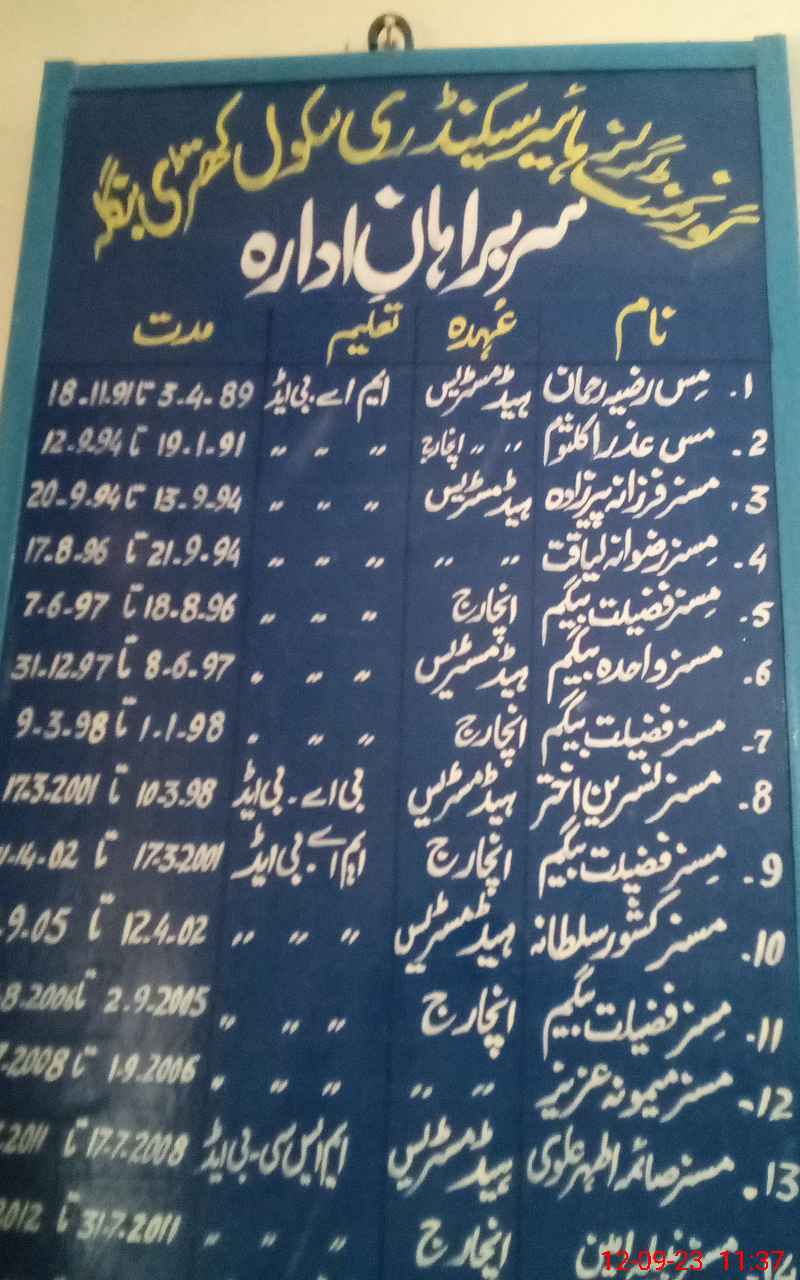 گورنمنٹ گرلز ہائیر سیکنڈری سکول کھتڑی بنگلہ
سربراہانِ ادارہ
نام عُہدہ تعلیم مدت
1. مِس رضیہ رحمان ہیڈمسٹریس ایم اے۔بی ایڈ 3-4-89 تا 18-11-91
2. مس عذرا کلثوم " " انچارج " " " 19-1-91 تا 12-9-94
3. مسز فرزانہ پیرزادہ ہیڈمسٹریس " " " 13-9-94 تا 20-9-94
4. مِسز رضوانہ لیاقت " " " " " 21-9-94 تا 17-8-96
5. مِسز فضیلت بیگم انچارج " " " 18-8-96 تا 7-6-97
6. مسز واحدہ بیگم ہیڈمسٹریس " " " 8-6-97 تا 31-12-97
7. مسز فضیلت بیگم انچارج " " " 1-1-98 تا 9-3-98
8. مسز نسرین اختر ہیڈمسٹریس بی اے۔بی ایڈ 10-3-98 تا 17-3-2001
9. مِسز فضیلت بیگم انچارج ایم اے۔بی ایڈ 17-3-2001 تا 14-02
10. مسز کشور سلطانہ ہیڈمسٹریس " " " 12-4-02 تا 9-05
11. مِسز فضیلت بیگم انچارج " " " 2-9-2005 تا 8-2006
12. مسز میمونہ عزیز " " " " " 1-9-2006 تا 2008
13. مسز صائمہ اطہر علوی ہیڈمسٹریس ایم ایس سی۔بی ایڈ 17-7-2008 تا 2011
انچارج " " " 31-7-2011 تا 2012
12-09-23 11:37